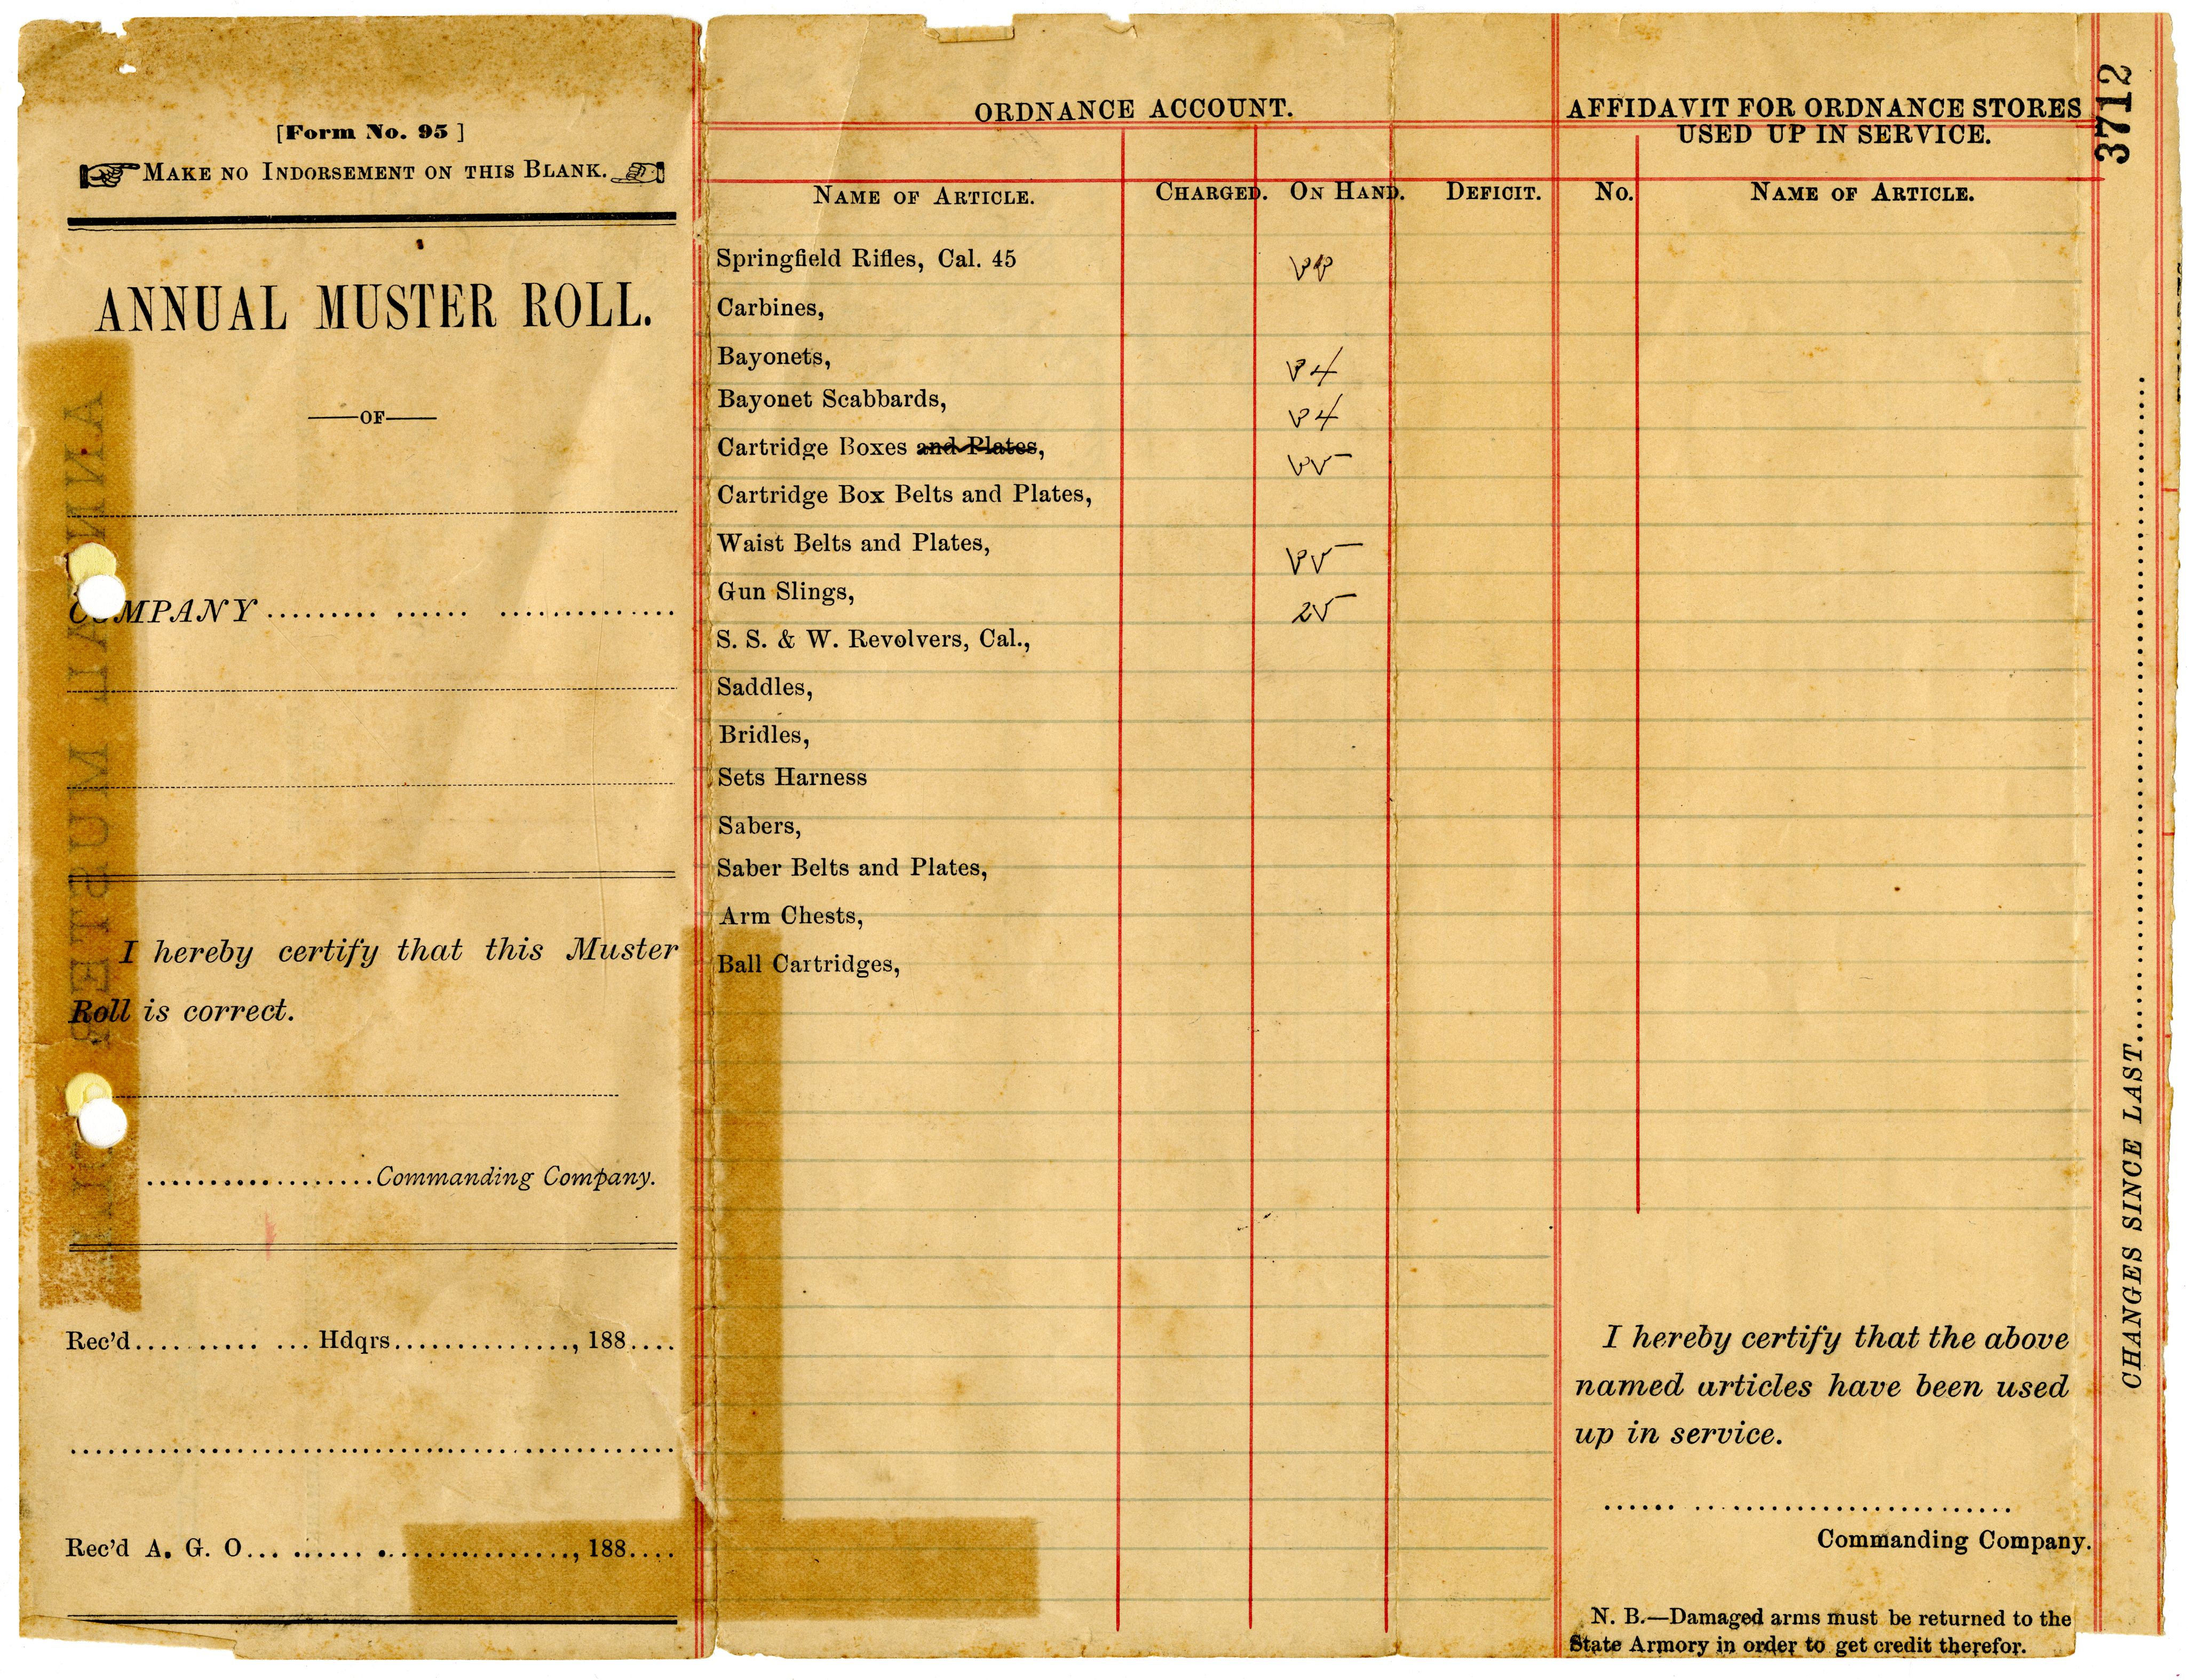 [Form No. 95 ]
MAKE NO INDORSEMENT ON THIS BLANK.
ANNUAL MUSTER ROLL.
OF
COMPANY
I hereby certify that this Muster
Roll is correct.
Commanding Company.
Rec'd.......... ... Hdqrs..............., 188....
Rec'd A. G. O... ...... ..................., 188....
ANNUAL MUSTER
ORDNANCE ACCOUNT.
NAME OF ARTICLE. CHARGED. ON HAND. DEFICIT.
Springfield Rifles, Cal. 45
Carbines,
Bayonets,
Bayonet Scabbards,
Cartridge Boxes and Plates,
Cartridge Box Belts and Plates,
Waist Belts and Plates,
Gun Slings, 25
S. S. & W. Revolvers, Cal.,
Saddles,
Bridles,
Sets Harness
Sabers,
Saber Belts and Plates,
Arm Chests,
Ball Cartridges,
AFFIDAVIT FOR ORDNANCE STORES
USED UP IN SERVICE.
No. NAME OF ARTICLE.
I hereby certify that the above
named articles have been used
up in service.
Commanding Company.
N. B.—Damaged arms must be returned to the
State Armory in order to get credit therefor.
3712
CHANGES SINCE LAST